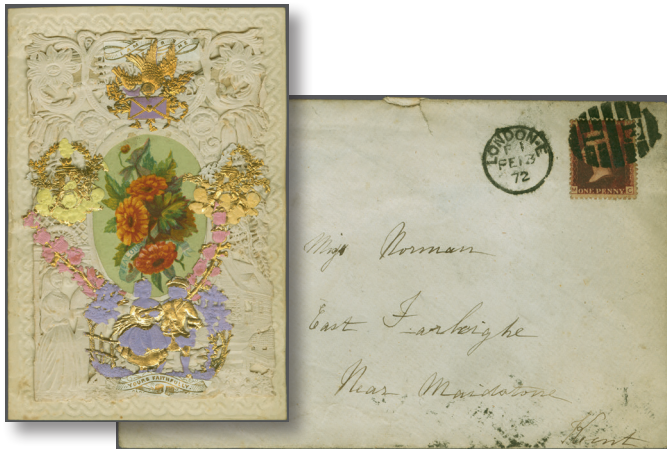 YOURS FAITHFULLY
LONDON-E
F 1
FE 13
72
ONE PENNY
Miss Norman
East Farleighe
Near Maidstone
Kent